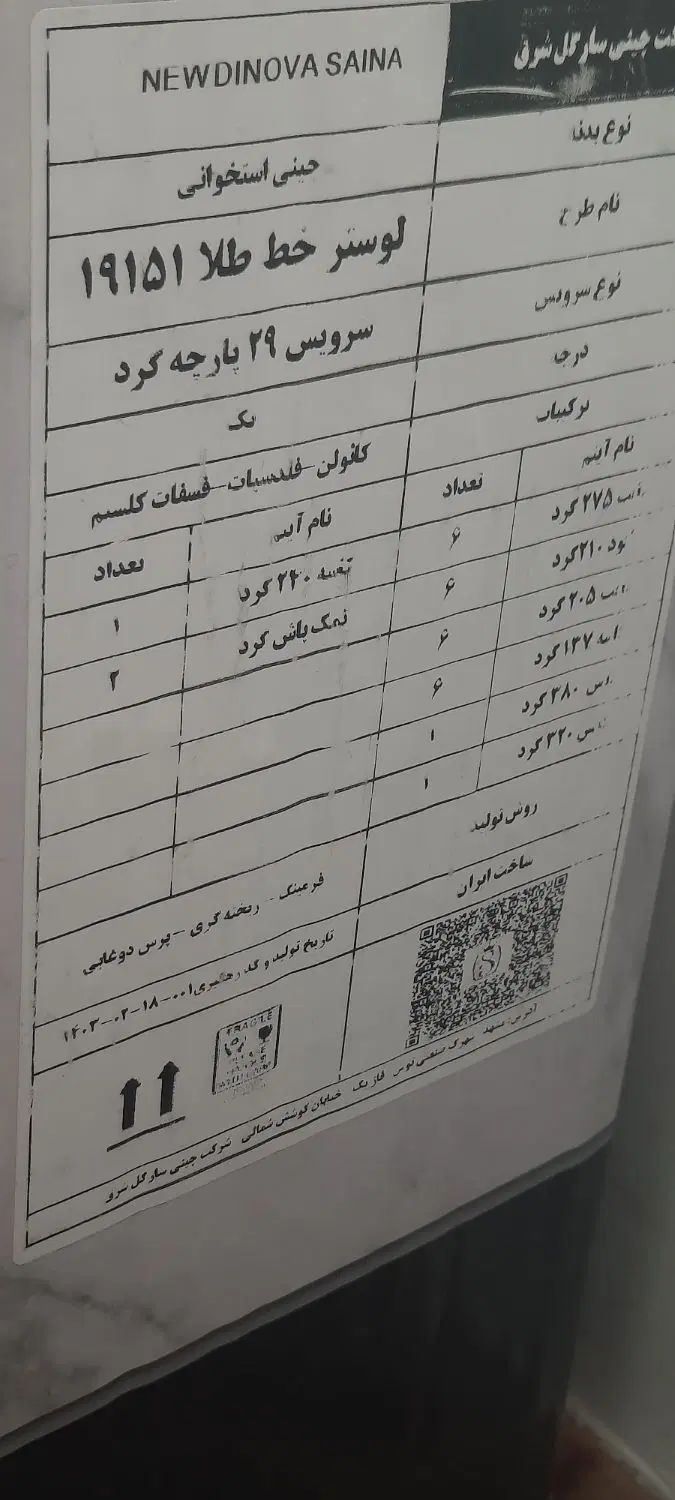 چینی سارگل شرق
NEW DINOVA SAINA
نوع بدنه
چینی استخوانی
نام طرح
لوستر خط طلا ۱۹۱۵۱
نوع سرویس
سرویس ۲۹ پارچه گرد
درجه
یک
ترکیبات
کائولن - فلدسپات - فسفات کلسیم
نام آیتم تعداد نام آیتم تعداد
۲۷۵ گرد ۶ ۲۴۰ گرد ۱
۲۱۰ گرد ۶ نمک پاش گرد ۲
۲۰۵ گرد ۶
۱۳۷ گرد ۶
۳۸۰ گرد ۱
۳۲۰ گرد ۱
روش تولید
فرمینگ - ریخته گری - پرس دوغابی
ساخت ایران
تاریخ تولید و کد رهگیری ۰۰۱-۱۸-۰۲-۱۴۰۳
FRAGILE
آدرس: مشهد شهرک صنعتی توس فاز یک خیابان کوشش شمالی شرکت چینی سارگل شرق